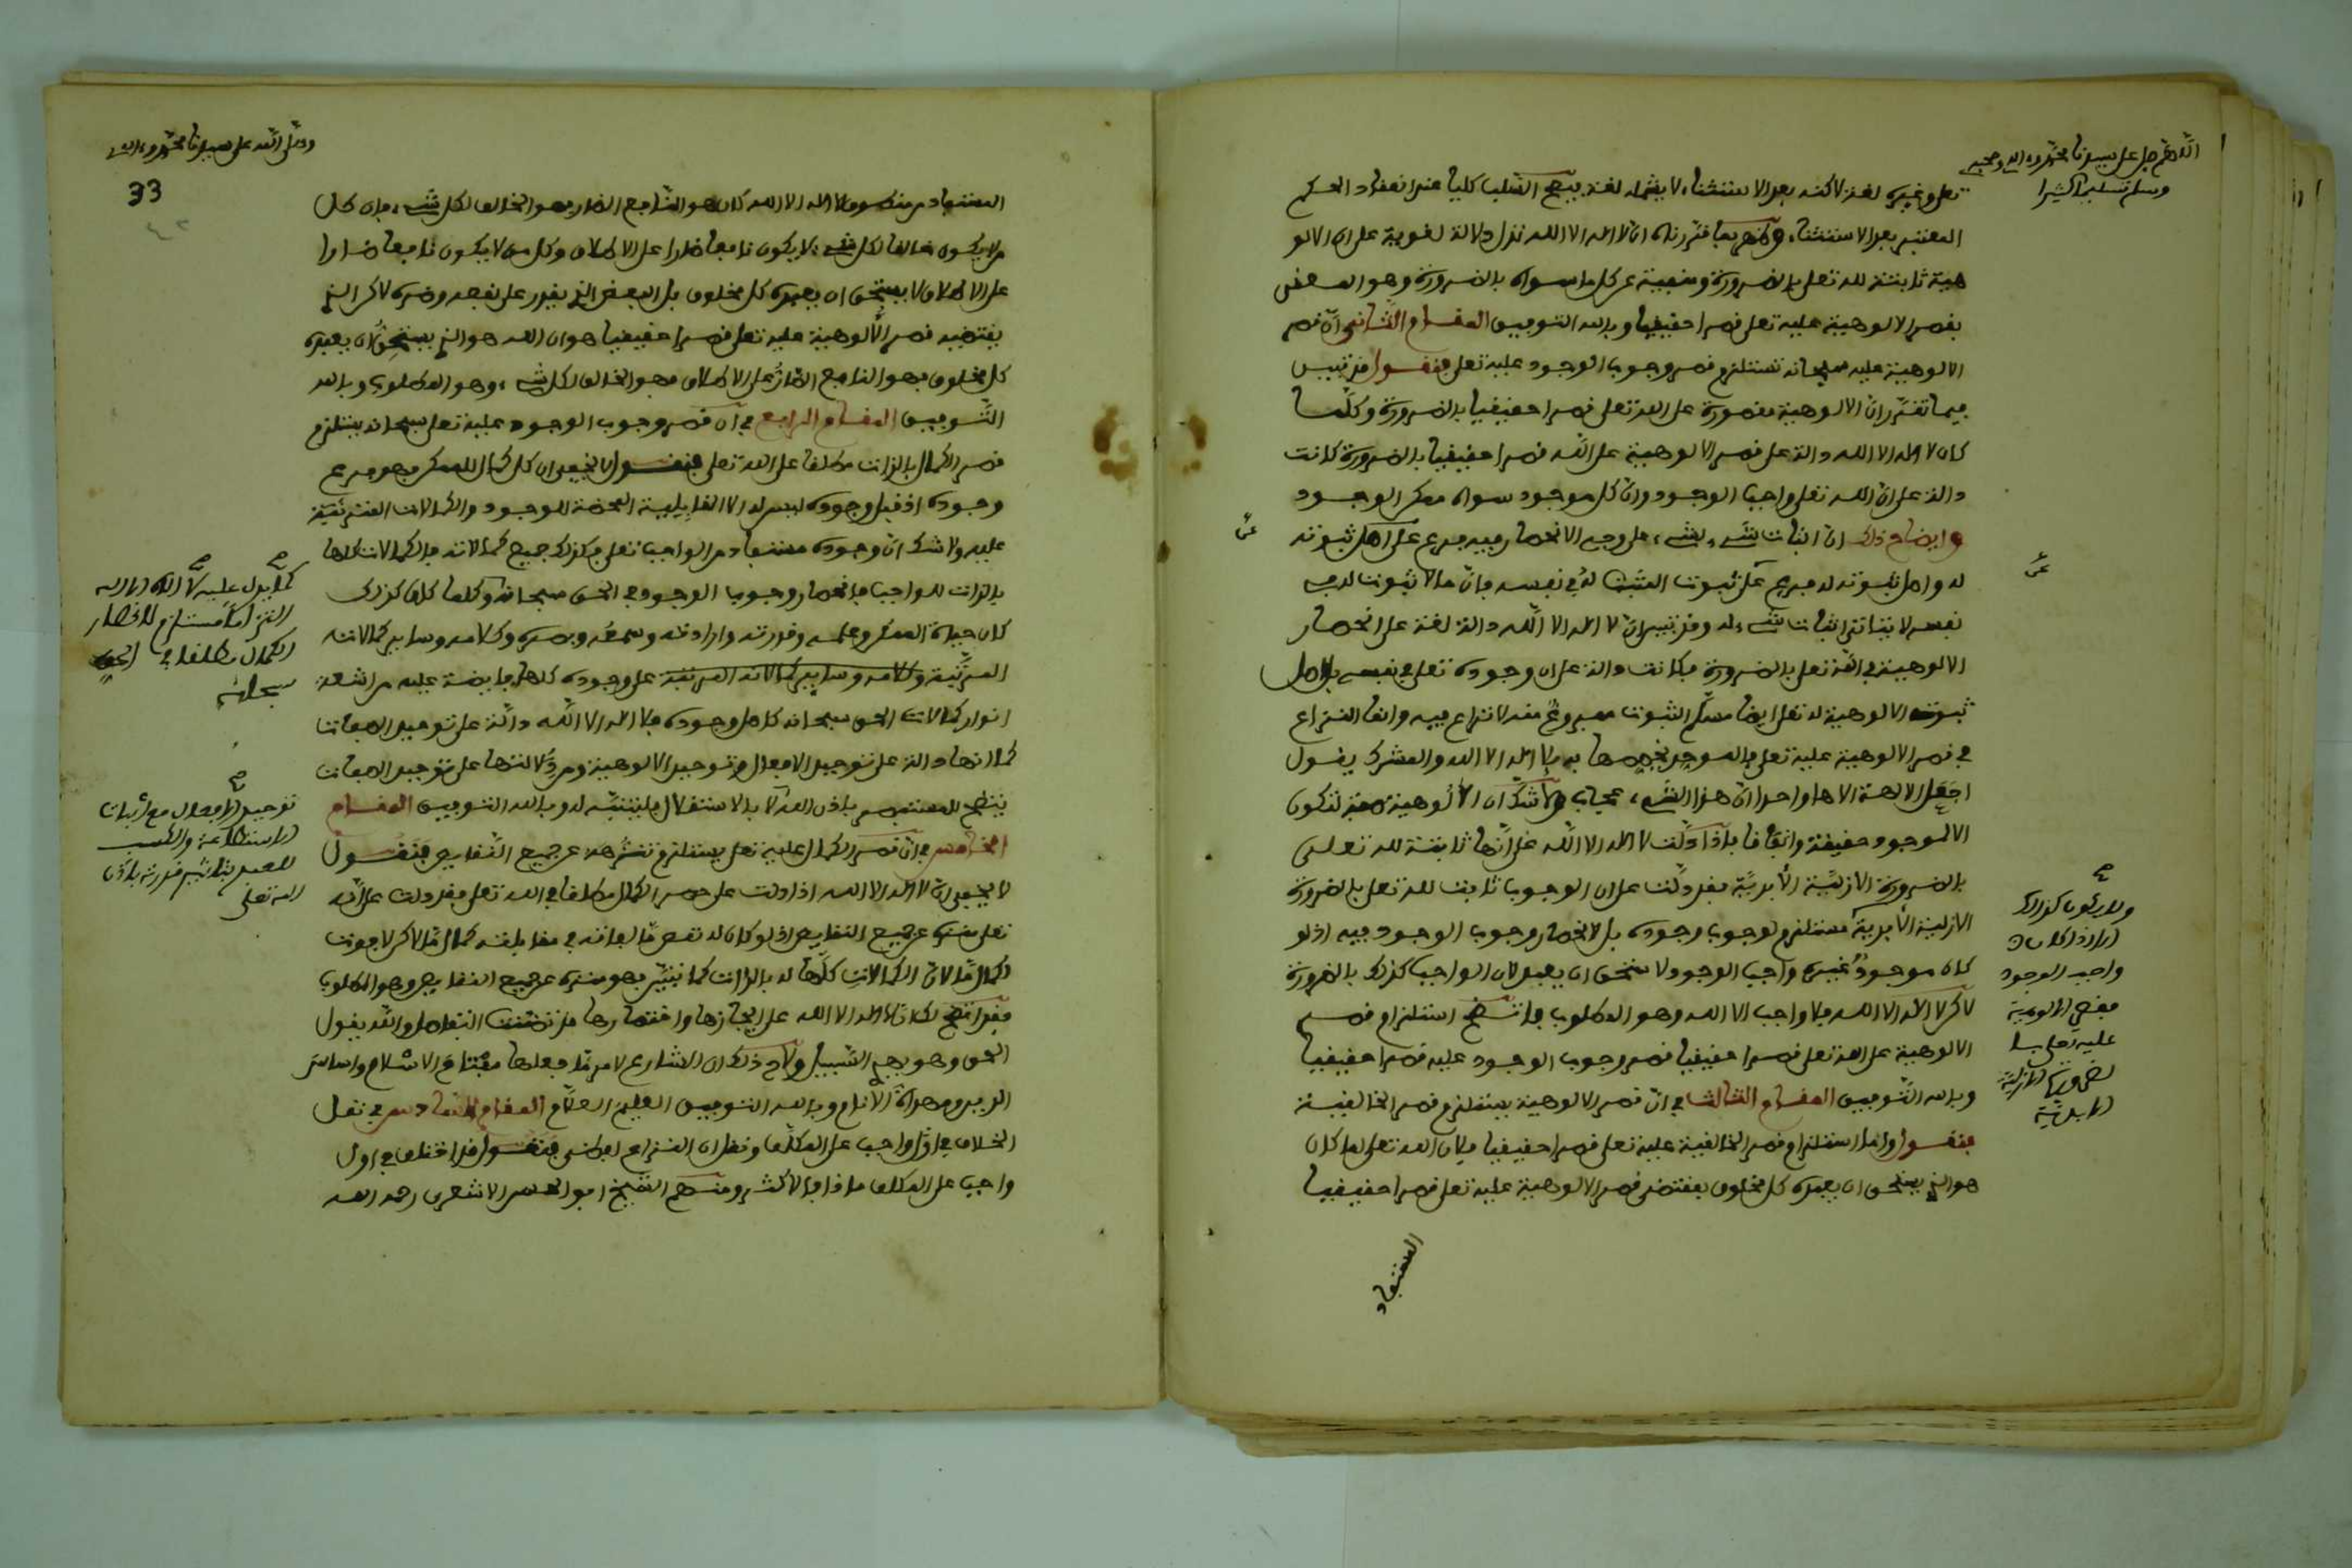 اللهم صل على سيدنا محمد وءاله وصحبه
وسلم تسليما كثيرا
تعلى وغيره لغة لاكنه بعد الاستثناء لا يشمله لغة بيصح السلب كليا عند انعقاد الحكم
المعتبر بعد الاستثناء وظهر بما قررناه ان لا اله الا الله تدل دلالة لغوية على ان الالو
هية ثابتة لله تعلى بالضرورة ومنفية عن كل ما سواه بالضرورة وهو المعنى
بقصر الالوهية عليه تعلى قصرا حقيقيا وبالله التوفيق المقام الثاني ان قصر
الالوهية عليه سبحانه تستلزم قصر وجوب الوجود عليه تعلى فنقول قد تبين
فيما تقرر ان الالوهية مقصورة على الله تعلى قصرا حقيقيا بالضرورة وكلما
كان لا اله الا الله دالة على قصر الالوهية على الله قصرا حقيقيا بالضرورة كانت
دالة على ان الله تعلى واجب الوجود وان كل موجود سواه ممكن الوجود
وايضاح ذلك ان اثبات شيء لشيء على وجه الانحصار فيه فرع على اصل ثبوته
له واصل ثبوته له فرع على ثبوت المثبت له في نفسه فان ما لا ثبوت له في
نفسه لا يتاتى اثبات شيء له وقد تبين ان لا اله الا الله دالة لغة على انحصار
الالوهية في الله تعلى بالضرورة فكانت دالة على ان وجوده تعلى في نفسه بل اصل
ثبوت الالوهية له تعلى ايضا مسلم الثبوت مفروغ منه لا نزاع فيه وانما النزاع
في قصر الالوهية عليه تعلى فالموحد يخصصها به بلا اله الا الله والمشرك يقول
اجعل الالهة الاها واحدا ان هذا لشيء عجاب ولا شك ان الالوهية صفة لا تكون
الا لموجود حقيقة واتفاقا فاذا دلت لا اله الا الله على انها ثابتة لله تعلى
بالضرورة الازلية الابدية فقد دلت على ان الوجوب ثابت لله تعلى بالضرورة
الازلية الابدية مستلزم لوجوب وجوده بل لانحصار وجوب الوجود فيه اذ لو
كان موجود غيره واجب الوجود لاستحق ان يعبد لان الواجب كذلك بالضرورة
لاكن لا اله الا الله فلا واجب الا الله وهو المطلوب فاتضح استلزام قصر
الالوهية على الله تعلى قصرا حقيقيا قصر وجوب الوجود عليه قصرا حقيقيا
وبالله التوفيق المقام الثالث في ان قصر الالوهية يستلزم قصر الخالقية
فنقول واما استلزام قصر الخالقية عليه تعلى قصرا حقيقيا فلان الله تعلى لما كان
هو الذي يستحق ان يعبده كل مخلوق بمقتضى قصر الالوهية عليه تعلى قصرا حقيقيا
المستفاد
ولا يكون كذلك
الا اذا كان
واجب الوجود
فقصر الالوهية
عليه تعلى بالـ
ضرورة الازلية
الابدية
وصلى الله على سيدنا محمد وءاله
33
المستفاد من منطوق لا اله الا الله كان هو النافع الضار فهو الخالق لكل شيء فان كل
من لا يكون خالقا لكل شيء لا يكون نافعا ضارا على الاطلاق وكل من لا يكون نافعا ضارا
على الاطلاق لا يستحق ان يعبده كل مخلوق بل البعض الذي يقدر على نفعه وضره لاكن الذي
يقتضيه قصر الالوهية عليه تعلى قصرا حقيقيا هو ان الله هو الذي يستحق ان يعبده
كل مخلوق فهو النافع الضار على الاطلاق فهو الخالق لكل شيء وهو المطلوب وبالله
التوفيق المقام الرابع في ان قصر وجوب الوجود عليه تعلى سبحانه يستلزم
قصر الكمال بالذات مطلقا على الله تعلى فنقول لا يخفى ان كل كمال للممكن فهو فرع
وجوده اذ قبل وجوده ليس له الا القابلية المحضة للوجود والكمالات المترتبة
عليه ولا شك ان وجوده مستفاد من الواجب تعلى فكذلك جميع كمالاته فالكمالات كلها
بالذات للواجب فانحصار وجوب الوجود في الحق سبحانه وكلما كان كذلك
كان حياة الممكن وعلمه وقدرته وارادته وسمعه وبصره وكلامه وساير كمالاته
المرتبة على وجوده كلها فايضة عليه من اشعة
انوار كمالات الحق سبحانه كاصل وجوده فلا اله الا الله دالة على توحيد الصفات
كما انها دالة على توحيد الافعال وتوحيد الالوهية ومن دلالتها على توحيد الصفات
يتضح للمستبصر باذن الله لا بالاستقلال فليتنبه له وبالله التوفيق المقام
الخامس في ان قصر الكمال عليه تعلى يستلزم تنزهه عن جميع النقايص فنقول
لا يخفى ان لا اله الا الله اذا دلت على حصر الكمال مطلقا في الله تعلى فقد دلت على انه
تعلى منزه عن جميع النقايص اذ لو كان له نقص ما لفاته في مقابلته كمال ما لاكن لا يفوت
كمال ما لان الكمالات كلها له بالذات كما تبين فهو منزه عن جميع النقايص وهو المطلوب
فقد اتضح لك ان لا اله الا الله على ايجازها واختصارها قد تضمنت التفاصيل والله يقول
الحق وهو يهدي السبيل ولاح ذلك ان الشارع لامر ما جعلها مفتاح الاسلام واساس
الدين ومهواة الانام وبالله التوفيق العليم العلام المقام السادس في نقل
الخلاف في اول واجب على المكلف ونقل ان النزاع لفظي فنقول قد اختلف في اول
واجب على المكلف ماذا فالاكثر ومنهم الشيخ ابو الحسن الاشعري رحمه الله
كما يدل عليه لا اله الا الله
التزاما مستلزم لانحصار
الكمال مطلقا في الحق
سبحانه
صح
توحيد الافعال مع اثبات
الاستطاعة والكسب
للعبد بتاثير قدرته باذن
الله تعلى